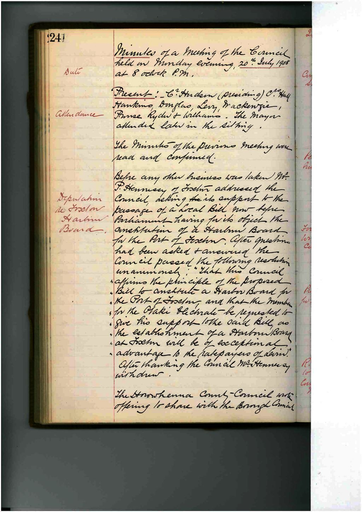 241
Minutes of a Meeting of the Council
held on Monday evening, 20th July 1908
at 8 o'clock P.M.
Date
Present: Cr. Hudson (presiding) Crs. Hall
Hankins, Douglas, Levy, Mackenzie,
Prouse Ryder & Williams. The Mayor
attended later in the sitting.
Attendance
The Minutes of the previous meeting were
read and confirmed.
Before any other business was taken Mr.
P. Hennessy of Foxton addressed the
Council, asking its support to the
passage of a Local Bill now before
Parliament having for its object the
constitution of a Harbor Board
for the Port of Foxton. After questions
had been asked & answered the
Council passed the following resolution
unanimously: "That this Council
affirms the principle of the proposed
Bill to constitute a Harbor Board for
the Port of Foxton, and that the Member
for the Otaki Electorate be requested to
give his support to the said Bill, as
the establishment of a Harbour Board
at Foxton will be of exceptional
advantage to the ratepayers of Levin"
After thanking the Council Mr. Hennessy
withdrew
Deputation
re Foxton
Harbor
Board.
The Horowhenua County Council wrote
offering to share with the Borough Council